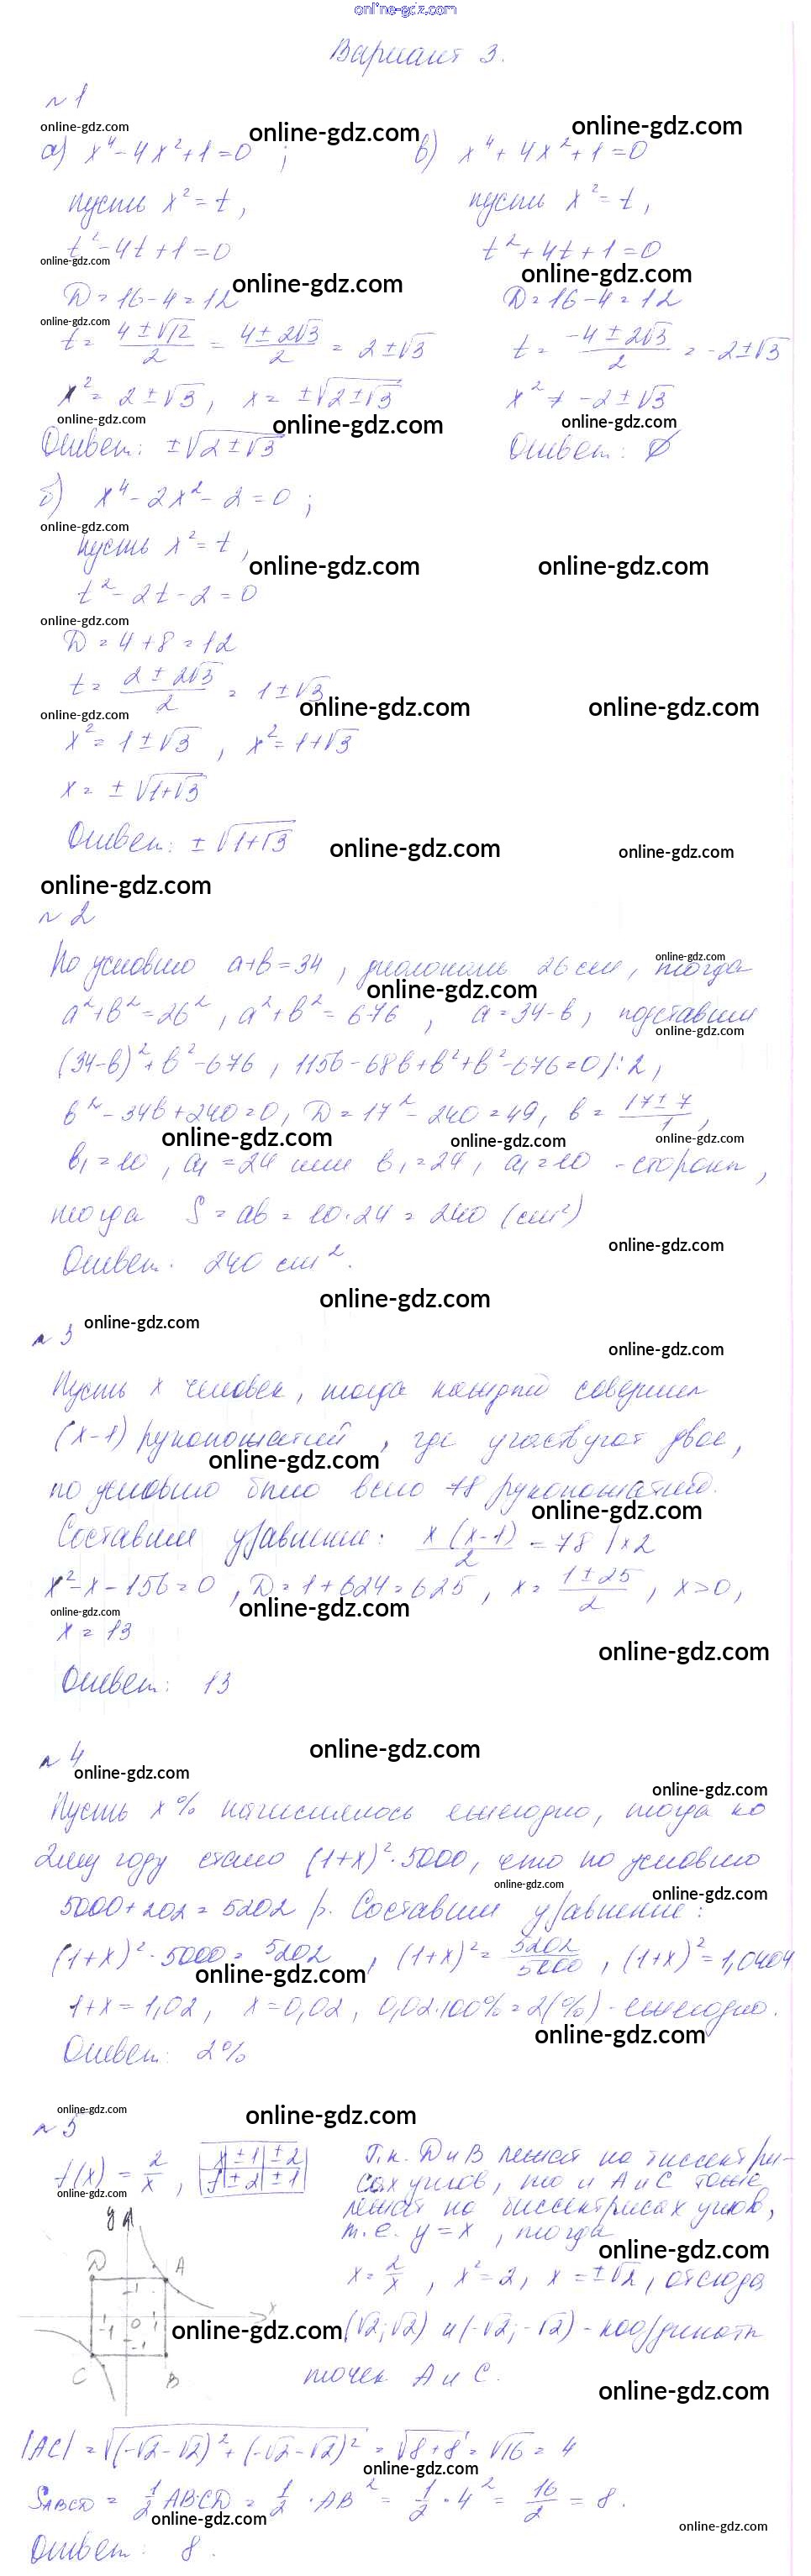 online-gdz.com
Вариант 3.
№1
online-gdz.com online-gdz.com online-gdz.com
а) x⁴-4x²+1=0 ; в) x⁴+4x²+1=0
пусть x²=t, пусть x²=t,
t²-4t+1=0 t²+4t+1=0
online-gdz.com online-gdz.com online-gdz.com
D=16-4=12 D=16-4=12
online-gdz.com
t= (4±√12)/2 = (4±2√3)/2 = 2±√3 t= (-4±2√3)/2 = -2±√3
x²=2±√3, x=±√(2±√3) x²≠-2±√3
online-gdz.com online-gdz.com online-gdz.com
Ответ: ±√(2±√3) Ответ: ∅
б) x⁴-2x²-2=0 ;
online-gdz.com
пусть x²=t,
online-gdz.com online-gdz.com
t²-2t-2=0
online-gdz.com
D=4+8=12
t= (2±2√3)/2 = 1±√3
online-gdz.com online-gdz.com online-gdz.com
x²=1±√3 , x²=1+√3
x=±√(1+√3)
Ответ: ±√(1+√3)
online-gdz.com online-gdz.com
online-gdz.com
№2
online-gdz.com
По условию a+b=34, диагональ 26 см, тогда
online-gdz.com
a²+b²=26², a²+b²=676 , a=34-b, подставим
online-gdz.com
(34-b)²+b²-676, 1156-68b+b²+b²-676=0/:2,
b²-34b+240=0, D=17²-240=49, b= (17±7)/1,
online-gdz.com online-gdz.com online-gdz.com
b₁=10, a₁=24 или b₁=24, a₁=10 - стороны,
тогда S=ab=10·24=240 (см²)
online-gdz.com
Ответ: 240 см².
online-gdz.com
№3 online-gdz.com
online-gdz.com
Пусть x человек, тогда каждый совершил
(x-1) рукопожатий, где участвуют двое,
online-gdz.com
по условию было всего 78 рукопожатий.
online-gdz.com
Составим уравнение: x(x-1)/2 =78 |×2
x²-x-156=0, D=1+624=625, x= (1±25)/2, x>0,
online-gdz.com online-gdz.com
x=13
online-gdz.com
Ответ: 13
online-gdz.com
№4
online-gdz.com
online-gdz.com
Пусть x% начислялось ежегодно, тогда ко
2му году стало (1+x)²·5000, что по условию
online-gdz.com online-gdz.com
5000+202=5202 р. Составим уравнение:
(1+x)²·5000=5202 , (1+x)²= 5202/5000 , (1+x)²=1,0404
online-gdz.com
1+x=1,02, x=0,02, 0,02·100%=2(%) - ежегодно.
online-gdz.com
Ответ: 2%
online-gdz.com online-gdz.com
№5
f(x)= 2/x , x ±1 ±2
y ±2 ±1
online-gdz.com
Т.к. D и B лежат на биссектри-
сах углов, то и A и C тоже
лежат на биссектрисах углов,
т.е. y=x , тогда
online-gdz.com
x= 2/x , x²=2, x=±√2, отсюда
online-gdz.com
(√2;√2) и (-√2;-√2) - координаты
точек A и C.
online-gdz.com
y D A 1 -1 0 1 -1 x C B
|AC|=√((-√2-√2)²+(-√2-√2)²)=√(8+8)=√16=4
online-gdz.com
S_ABCD = 1/2 AB·CD = 1/2 ·AB² = 1/2 ·4² = 16/2 = 8.
online-gdz.com online-gdz.com
Ответ: 8.